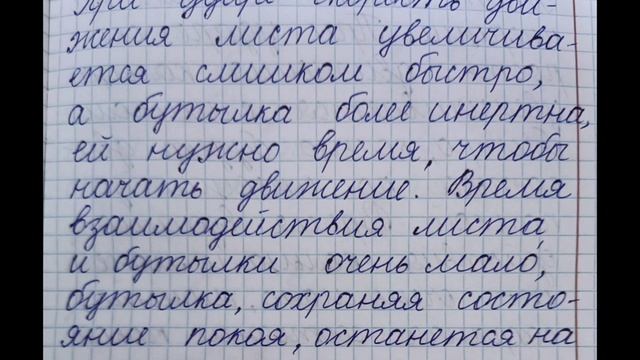 При ударе скорость дви-
жения листа увеличива-
ется слишком быстро,
а бутылка более инертна,
ей нужно время, чтобы
начать движение. Время
взаимодействия листа
и бутылки очень мало,
бутылка, сохраняя состо-
яние покоя, останется на